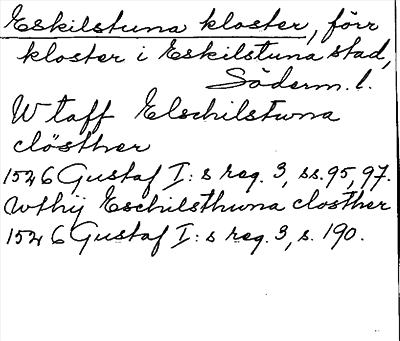 Eskilstuna kloster, förr
kloster i Eskilstuna stad,
Söderm. l.
Wtaff Elschilstwna
clösther
1526 Gustaf I:s reg. 3, ss. 95, 97.
Wthij Eschilsthwna closther
1526 Gustaf I:s reg. 3, s. 190.